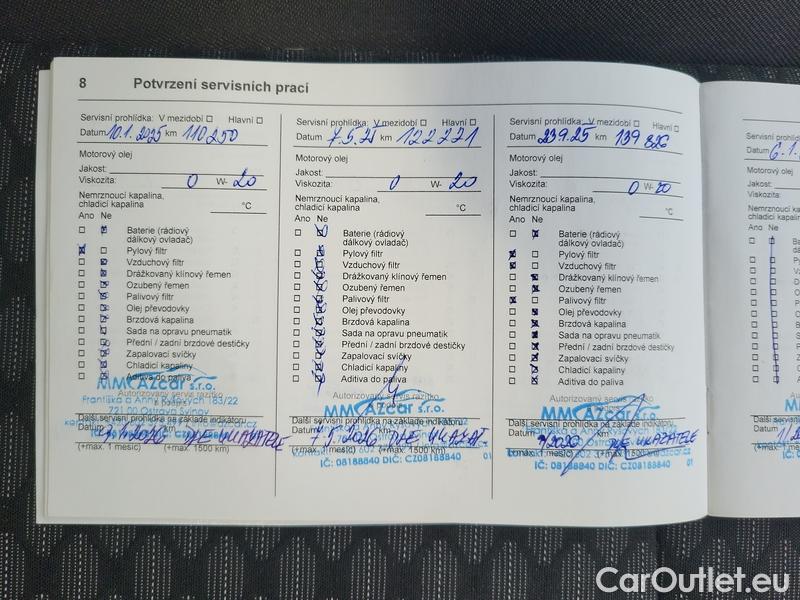 8 Potvrzení servisních prací
Servisní prohlídka: V mezidobí □ Hlavní □
Datum 10.1.2025 km 110250
Motorový olej
Jakost:
Viskozita: 0 W- 20
Nemrznoucí kapalina,
chladicí kapalina °C
Ano Ne
Baterie (rádiový
dálkový ovladač)
Pylový filtr
Vzduchový filtr
Drážkovaný klínový řemen
Ozubený řemen
Palivový filtr
Olej převodovky
Brzdová kapalina
Sada na opravu pneumatik
Přední / zadní brzdové destičky
Zapalovací svíčky
Chladicí kapaliny
Aditiva do paliva
Autorizovaný servis razítko
MM AZcar s.r.o.
Františka a Anny Ryšových 1183/22
721 00 Ostrava Svinov
Další servisní prohlídka na základe indikátoru
Datum km DLE UKAZATELE
(+max. 1 měsíc) (+max. 1500 km)
Servisní prohlídka: V mezidobí □ Hlavní □
Datum 7.5.25 km 122221
Motorový olej
Jakost:
Viskozita: 0 W- 20
Nemrznoucí kapalina,
chladicí kapalina °C
Ano Ne
Baterie (rádiový
dálkový ovladač)
Pylový filtr
Vzduchový filtr
Drážkovaný klínový řemen
Ozubený řemen
Palivový filtr
Olej převodovky
Brzdová kapalina
Sada na opravu pneumatik
Přední / zadní brzdové destičky
Zapalovací svíčky
Chladicí kapaliny
Aditiva do paliva
Autorizovaný servis razítko
MM AZcar s.r.o.
Další servisní prohlídka na základe indikátoru
Datum km
(+max. 1 měsíc) (+max. 1500 km)
IČ: 08188840 DIČ: CZ08188840 01
Servisní prohlídka: V mezidobí □ Hlavní □
Datum 23.9.25 km 139 826
Motorový olej
Jakost:
Viskozita: 0 W- 20
Nemrznoucí kapalina,
chladicí kapalina °C
Ano Ne
Baterie (rádiový
dálkový ovladač)
Pylový filtr
Vzduchový filtr
Drážkovaný klínový řemen
Ozubený řemen
Palivový filtr
Olej převodovky
Brzdová kapalina
Sada na opravu pneumatik
Přední / zadní brzdové destičky
Zapalovací svíčky
Chladicí kapaliny
Aditiva do paliva
Autorizovaný servis razítko
MM AZcar s.r.o.
Další servisní prohlídka na základe indikátoru
Datum km DLE UKAZATELE
(+max. 1 měsíc) (+max. 1500 km)
IČ: 08188840 DIČ: CZ08188840 01
Servisní prohlídka
Datum
Motorový olej
Jakost:
Viskozita:
Nemrznoucí kapal
chladicí kapalina
Ano Ne
CarOutlet.eu